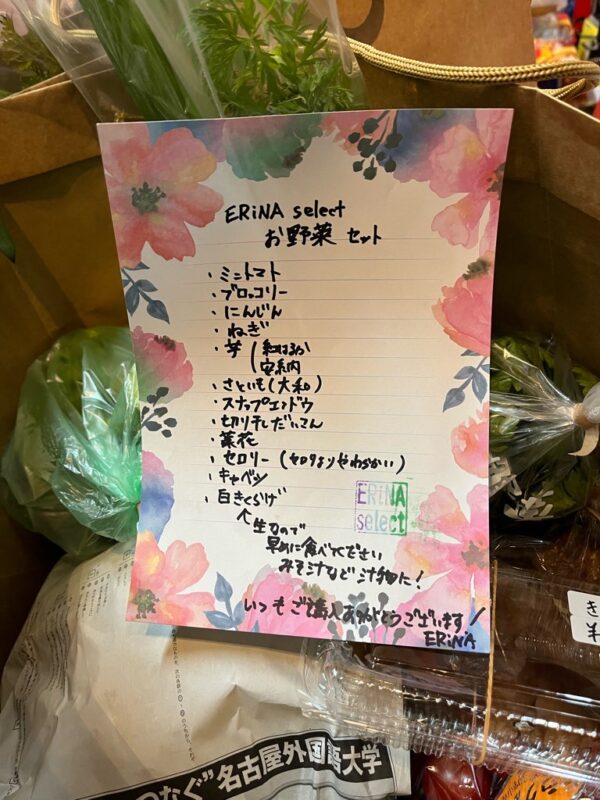 ERiNA select
お野菜 セット
・ミニトマト
・ブロッコリー
・にんじん
・ねぎ
・芋 (紅はるか
安納
・さといも(大和)
・スナップエンドウ
・切り干しだいこん
・菜花
・セロリー (セロリよりやわらかい)
・キャベツ
・白きくらげ
生なので
早めに食べてください
みそ汁など 汁物に!
いつもご購入ありがとうございます!
ERiNA
ERiNA
select
つなぐ"名古屋外国語大学